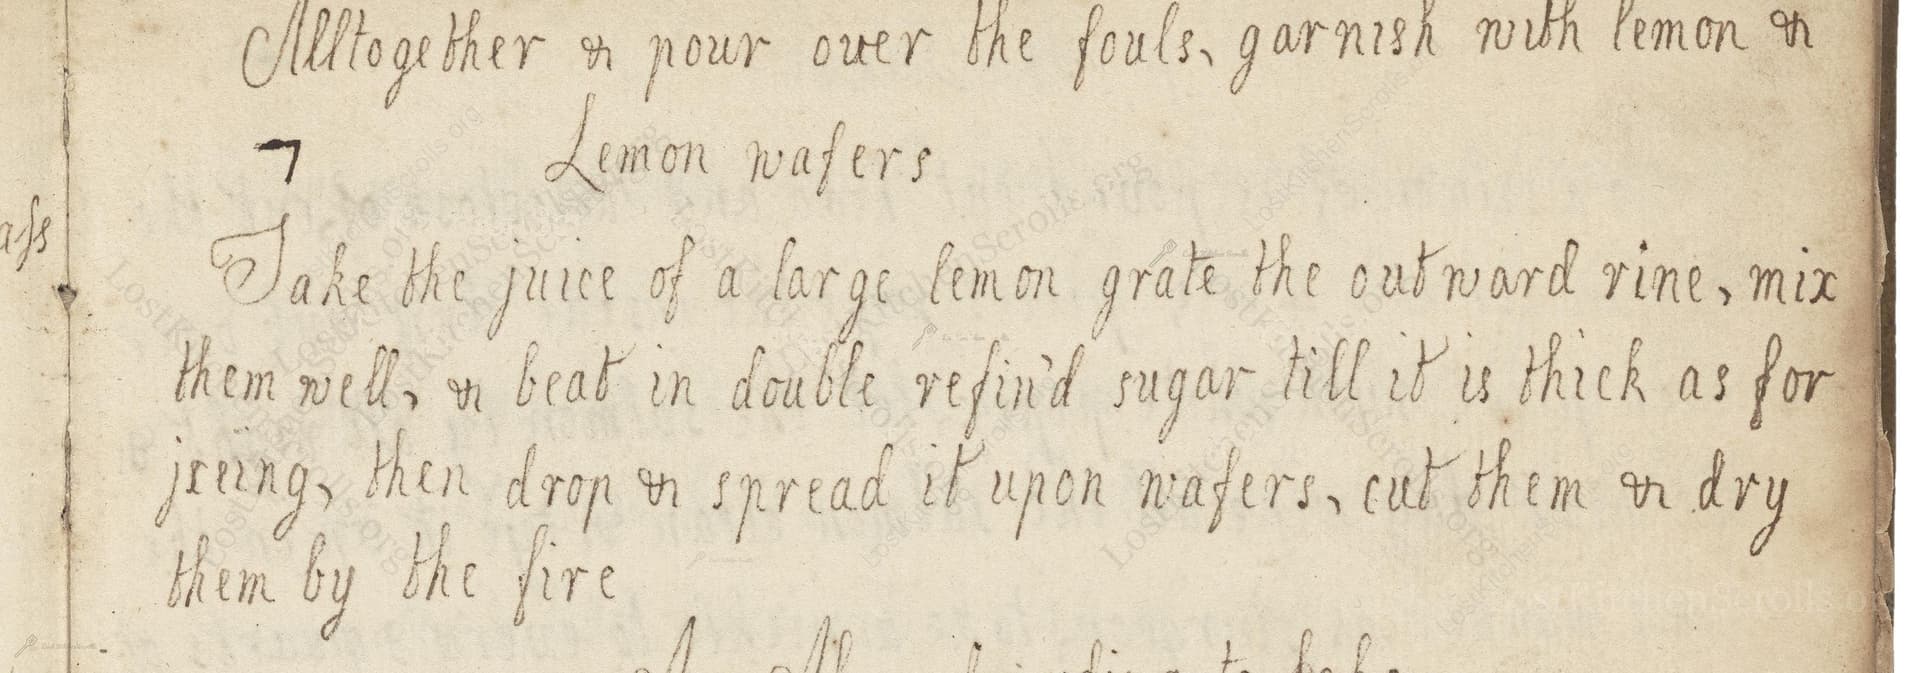 Alltogether & pour over the fouls, garnish with lemon &
7 Lemon wafers
Take the juice of a large lemon grate the outward rine, mix
them well, & beat in double refin'd sugar till it is thick as for
jseing, then drop & spread it upon wafers, cut them & dry
them by the fire
to bake
LostKitchenScrolls.org